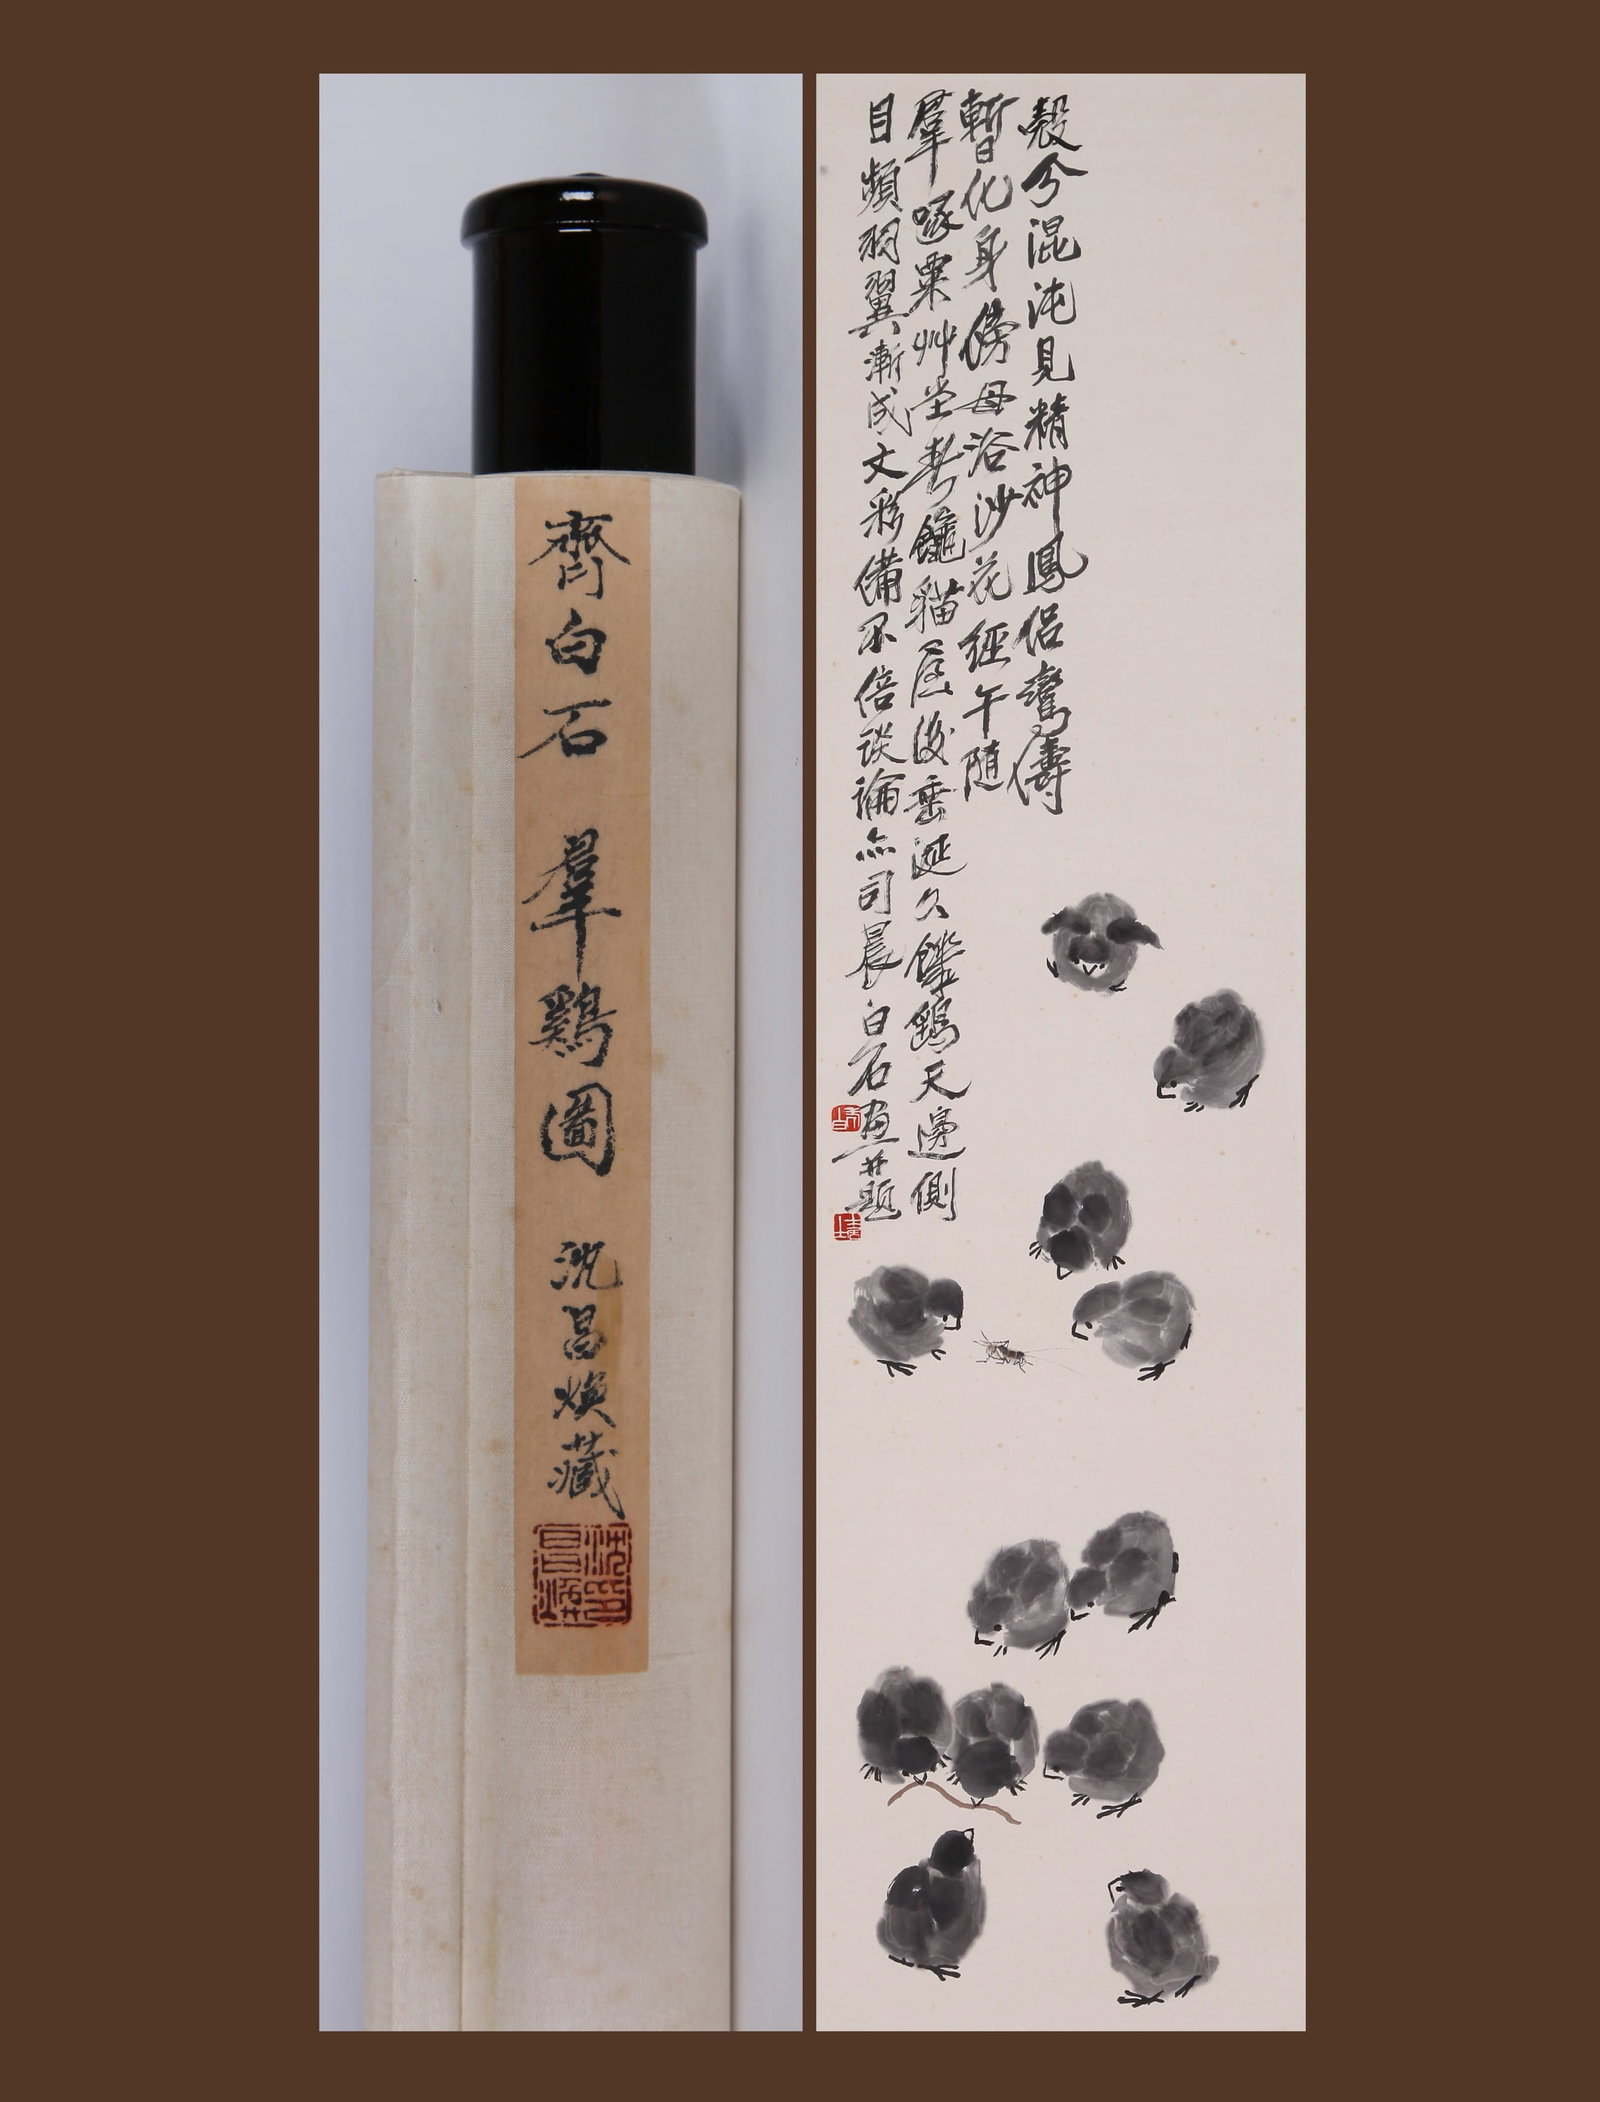 齊白石 羣鷄圖 沈昌焕藏
沈昌焕印
殼兮混沌見精神鳳侶鸞儔
暫化身傍母浴沙花徑午隨
羣啄粟艸堂春饞猫屋後垂涎久饑鷂天邊側
目頻羽翼漸成文彩備不倍談論亦司晨白石畫并題